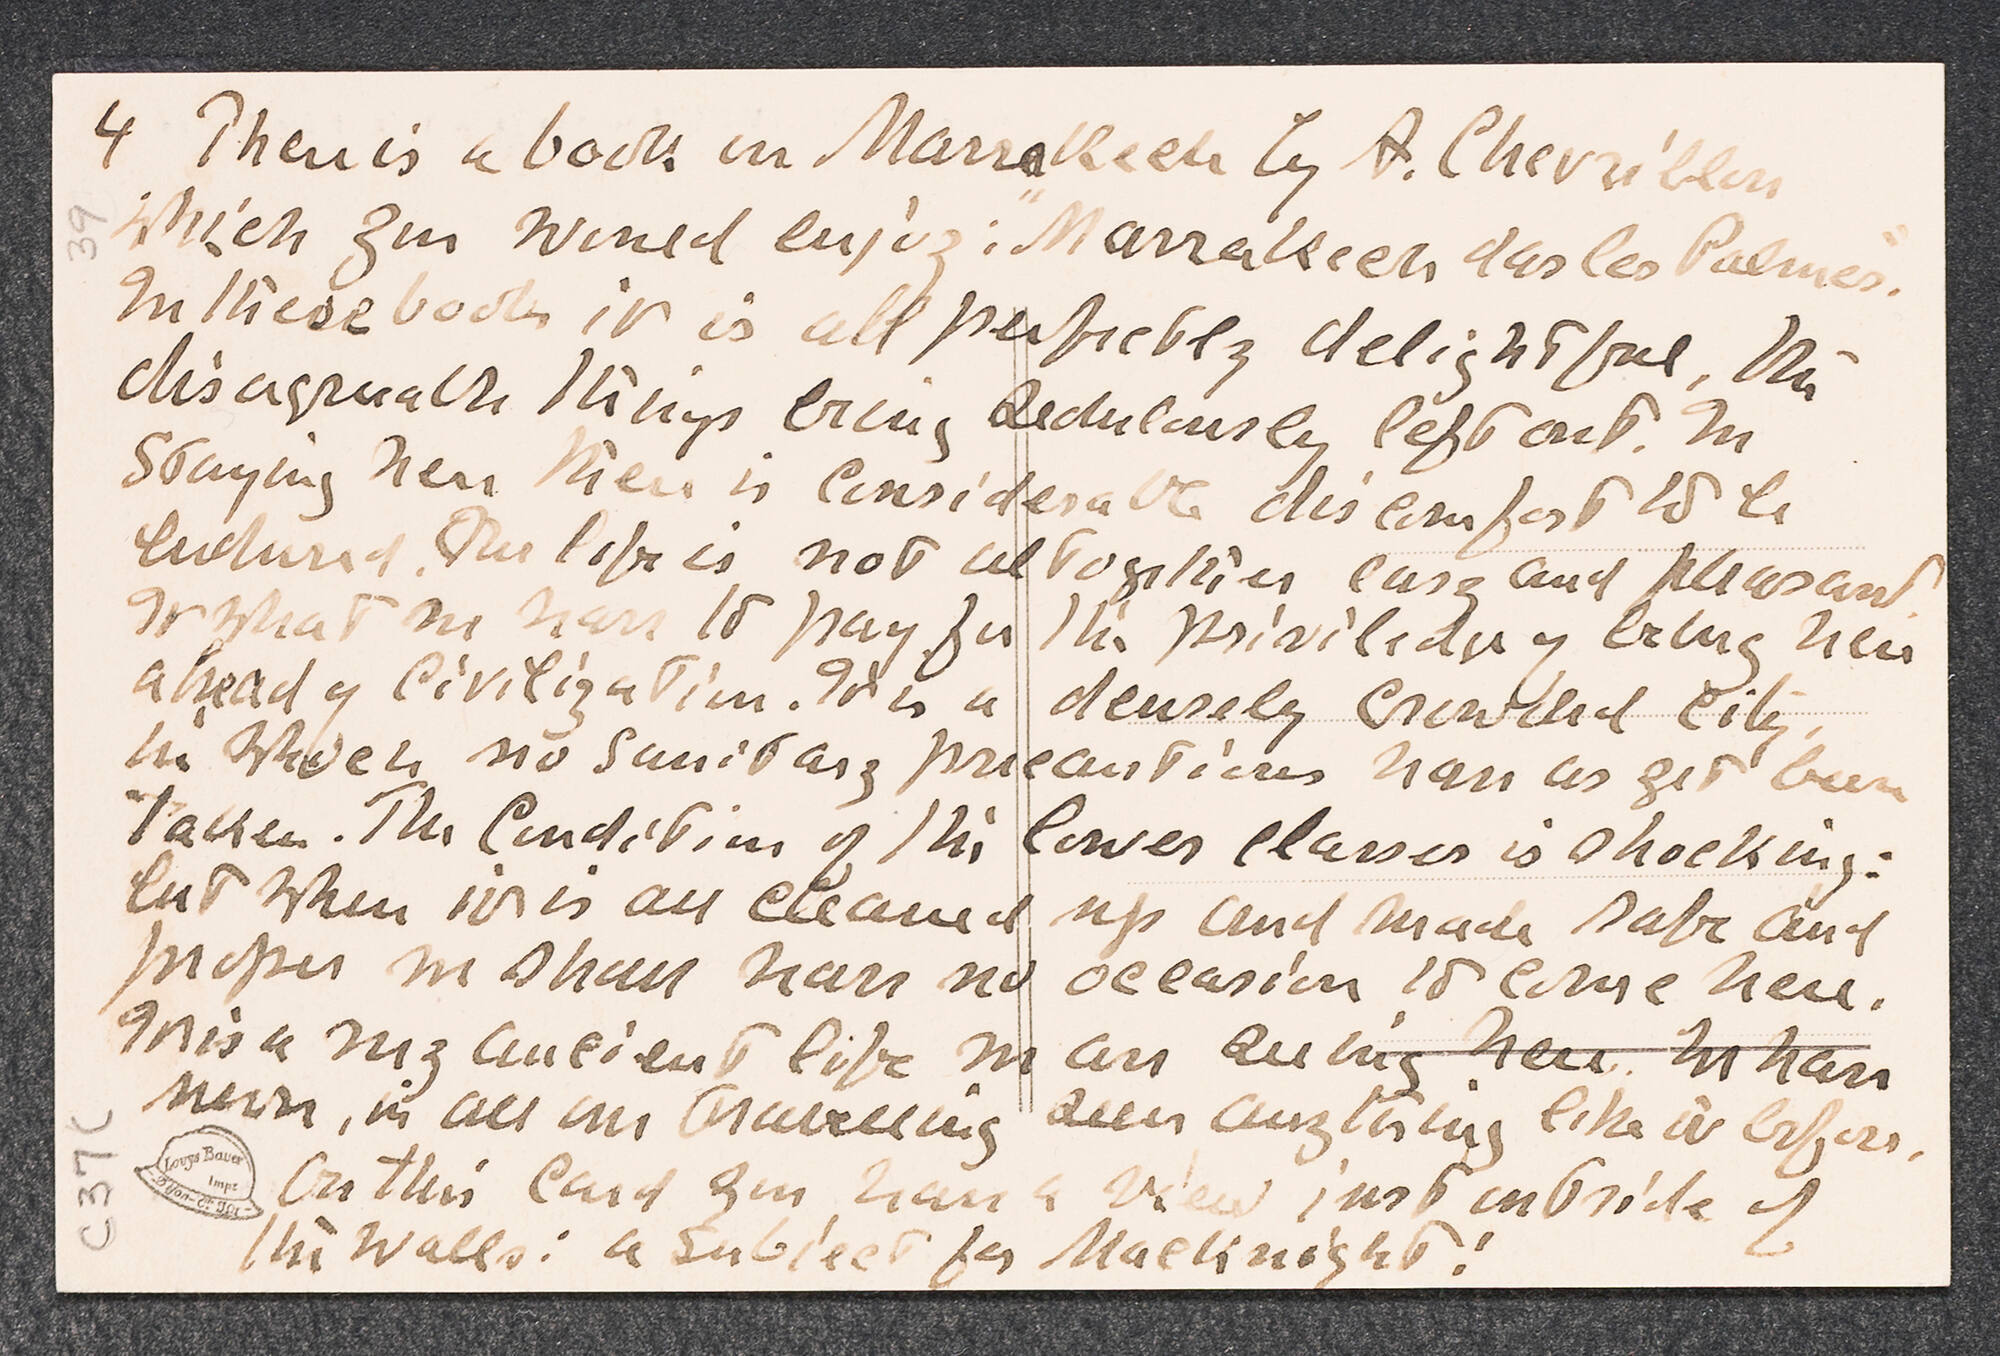 4 There is a book on Marrakech by A. Chevrillon
which you would enjoy: "Marrakech das les Palmes".
In these books it is all perfectly delightful, the
disagreeable things being sedulously left out. In
staying here there is considerable discomfort to be
endured. Our life is not altogether easy and pleasant.
It what we have to pay for the priviledge of being here
ahead of civilization. It is a densely crowded city,
in which no sanitary precautions have as yet been
taken. The condition of the lower classes is shocking:
but when it is all cleaned up and made safe and
proper we shall have no occasion to come here.
It is a very ancient life we are seeing here. We have
never, in all our travelling seen anything like it before.
On this card you have a view just outside of
the walls: a subject for Macknight!
39
C37C
Louys Bauer
Impr
Dijon